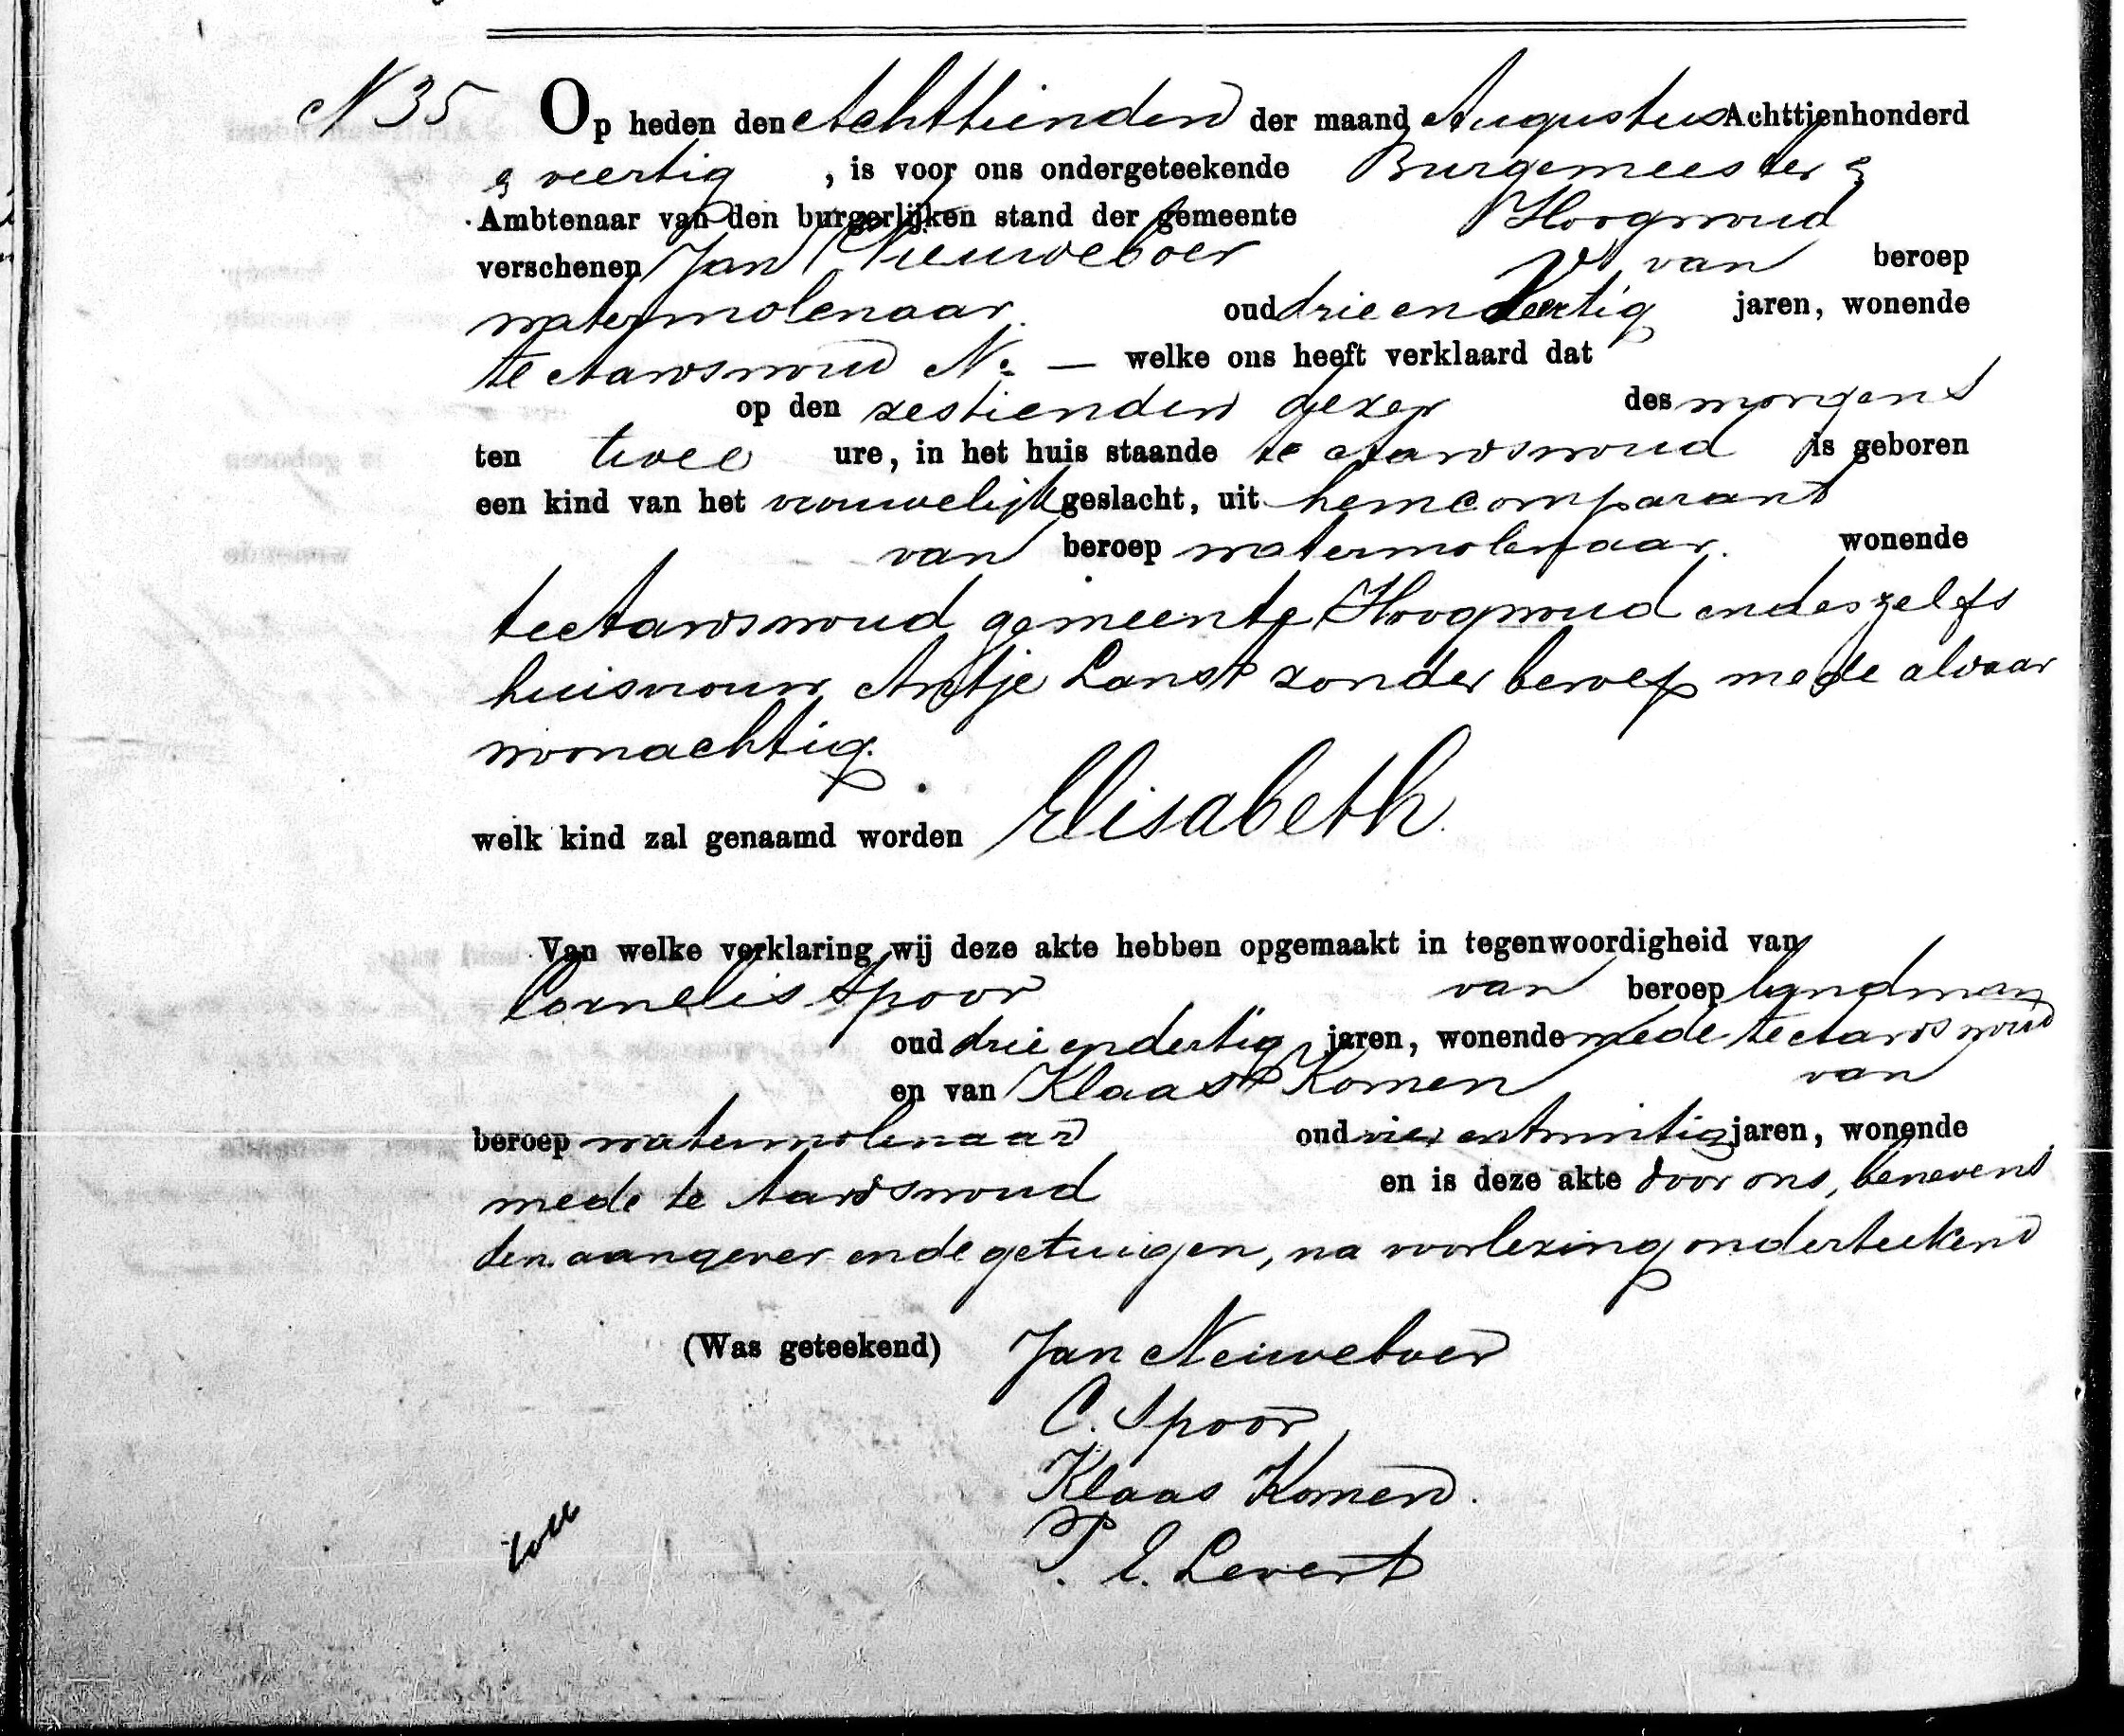 N 35 Op heden den Achttienden der maand Augustus Achttienhonderd
& veertig , is voor ons ondergeteekende Burgemeester &
Ambtenaar van den burgerlijken stand der gemeente Hoogwoud
verschenen Jan Nieuweboer van beroep
watermolenaar. oud drie en dertig jaren, wonende
te Aardswoud No. — welke ons heeft verklaard dat
op den zestienden dezer des morgens
ten twee ure, in het huis staande te Aardswoud is geboren
een kind van het vrouwelijk geslacht, uit hem comparant
van beroep watermolenaar. wonende
te Aardswoud gemeente Hoogwoud en deszelfs
huisvrouw Antje Lanst zonder beroep mede aldaar
woonachtig.
welk kind zal genaamd worden Elisabeth.
Van welke verklaring wij deze akte hebben opgemaakt in tegenwoordigheid van
Cornelis Spoor van beroep landman
oud drie en dertig jaren, wonende mede te Aardswoud
en van Klaas Komen van
beroep watermolenaar oud vier en twintig jaren, wonende
mede te Aardswoud en is deze akte door ons, benevens
den aangever en de getuigen, na voorlezing onderteekend
(Was geteekend) Jan Neiuweboer
C. Spoor
Klaas Komen.
P. E. Levert